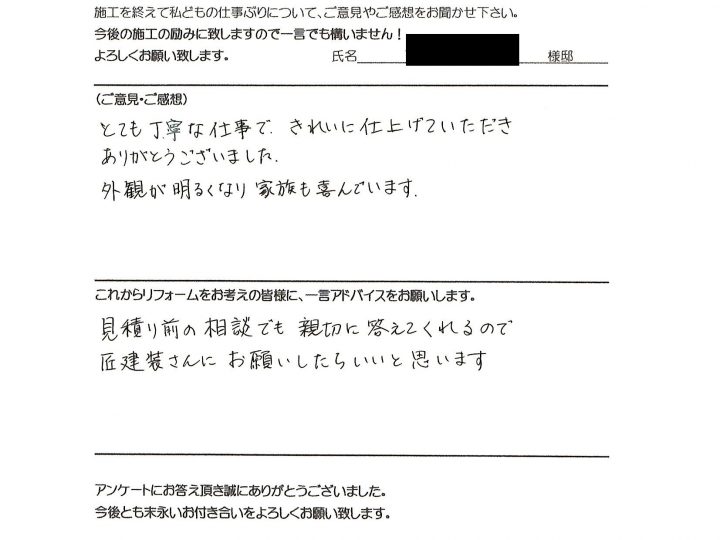 施工を終えて私どもの仕事ぶりについて、ご意見やご感想をお聞かせ下さい。
今後の施工の励みに致しますので一言でも構いません！
よろしくお願い致します。 氏名 様邸
(ご意見・ご感想)
とても丁寧な仕事で、きれいに仕上げていただき
ありがとうございました。
外観が明るくなり家族も喜んでいます。
これからリフォームをお考えの皆様に、一言アドバイスをお願いします。
見積り前の相談でも親切に答えてくれるので
匠建装さんにお願いしたらいいと思います
アンケートにお答え頂き誠にありがとうございました。
今後とも末永いお付き合いをよろしくお願い致します。